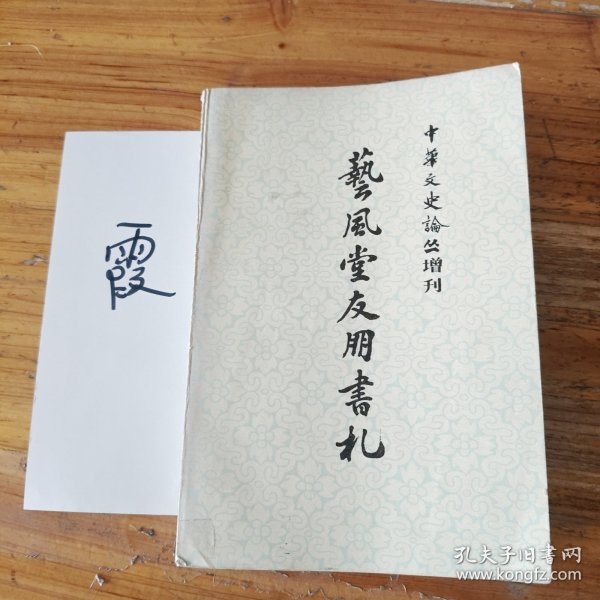 霞
中華文史論丛增刊
藝風堂友朋書札
孔夫子旧書网
www.kongfz.com